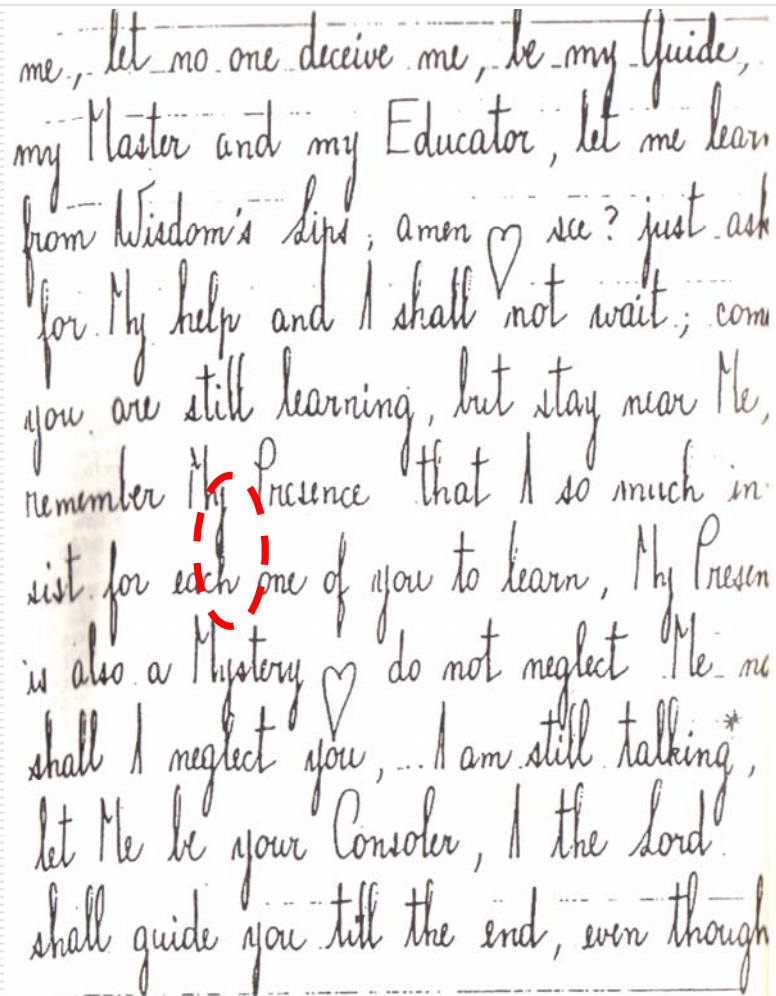 me, let no one deceive me, be my Guide,
my Master and my Educator, let me learn
from Wisdom's Lips; amen ♡ see? just ask
for My help and I shall not wait; come
you are still learning, but stay near Me,
remember My Presence that I so much in
sist for each one of you to learn, My Presen
is also a Mystery ♡ do not neglect Me no
shall I neglect you, ... I am still talking*,
let Me be your Consoler, I the Lord
shall guide you till the end, even though